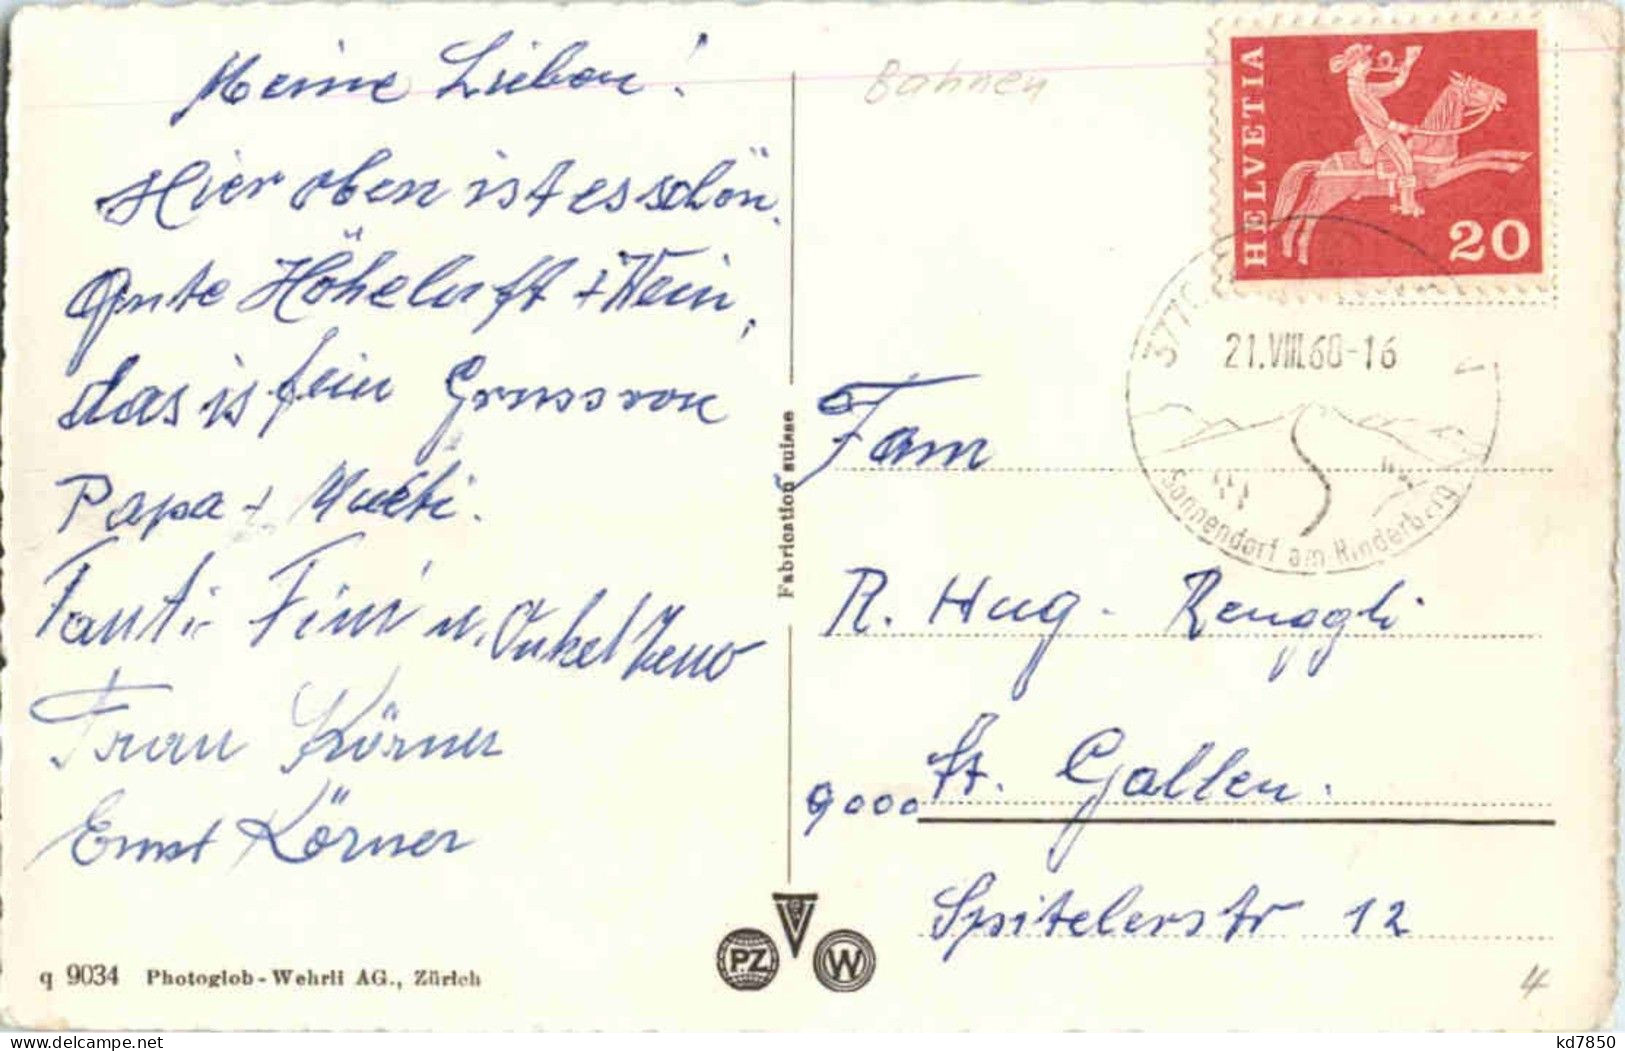 Meine Lieben!
Hier oben ist es schön.
Gute Höheluft + Wein,
das is fein Gruss von
Papa + Mueti.
Tanti Fini u. Onkel Zeno
Frau Körner
Ernst Körner
q 9034 Photoglob-Wehrli AG., Zürich
Fabrication suisse
PZ
W
Bahnen
HELVETIA
20
377
21.VIII.68-16
Sonnendorf am Rinderberg
Fam
R. Hug - Renggli
9000 St. Gallen.
Spitelerstr 12
4
kd7850